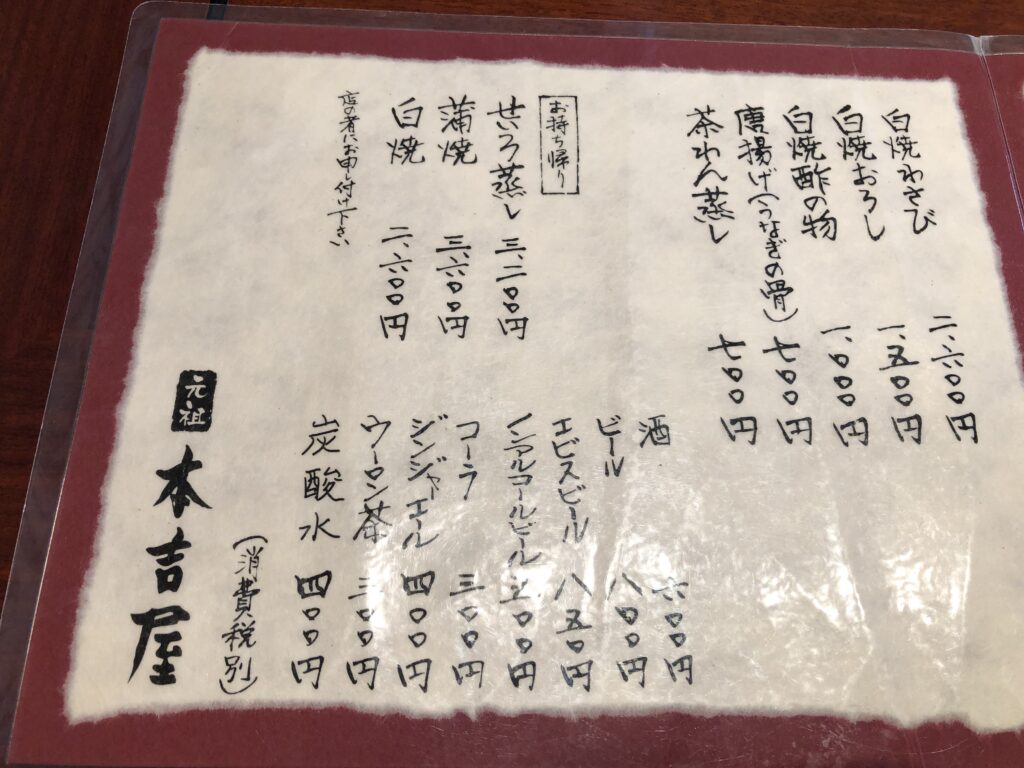 白焼わさび 二、六〇〇円
白焼おろし 一、五〇〇円
白焼酢の物 一、〇〇〇円
唐揚げ(うなぎの骨) 七〇〇円
茶わん蒸し 七〇〇円
お持ち帰り
せいろ蒸し 三、二〇〇円
蒲焼 三、六〇〇円
白焼 二、六〇〇円
店の者にお申し付け下さい
酒 六〇〇円
ビール 八〇〇円
エビスビール 八五〇円
ノンアルコールビール 〇〇円
コーラ 三〇〇円
ジンジャーエール 四〇〇円
ウーロン茶 三〇〇円
炭酸水 四〇〇円
(消費税別)
元祖 本吉屋